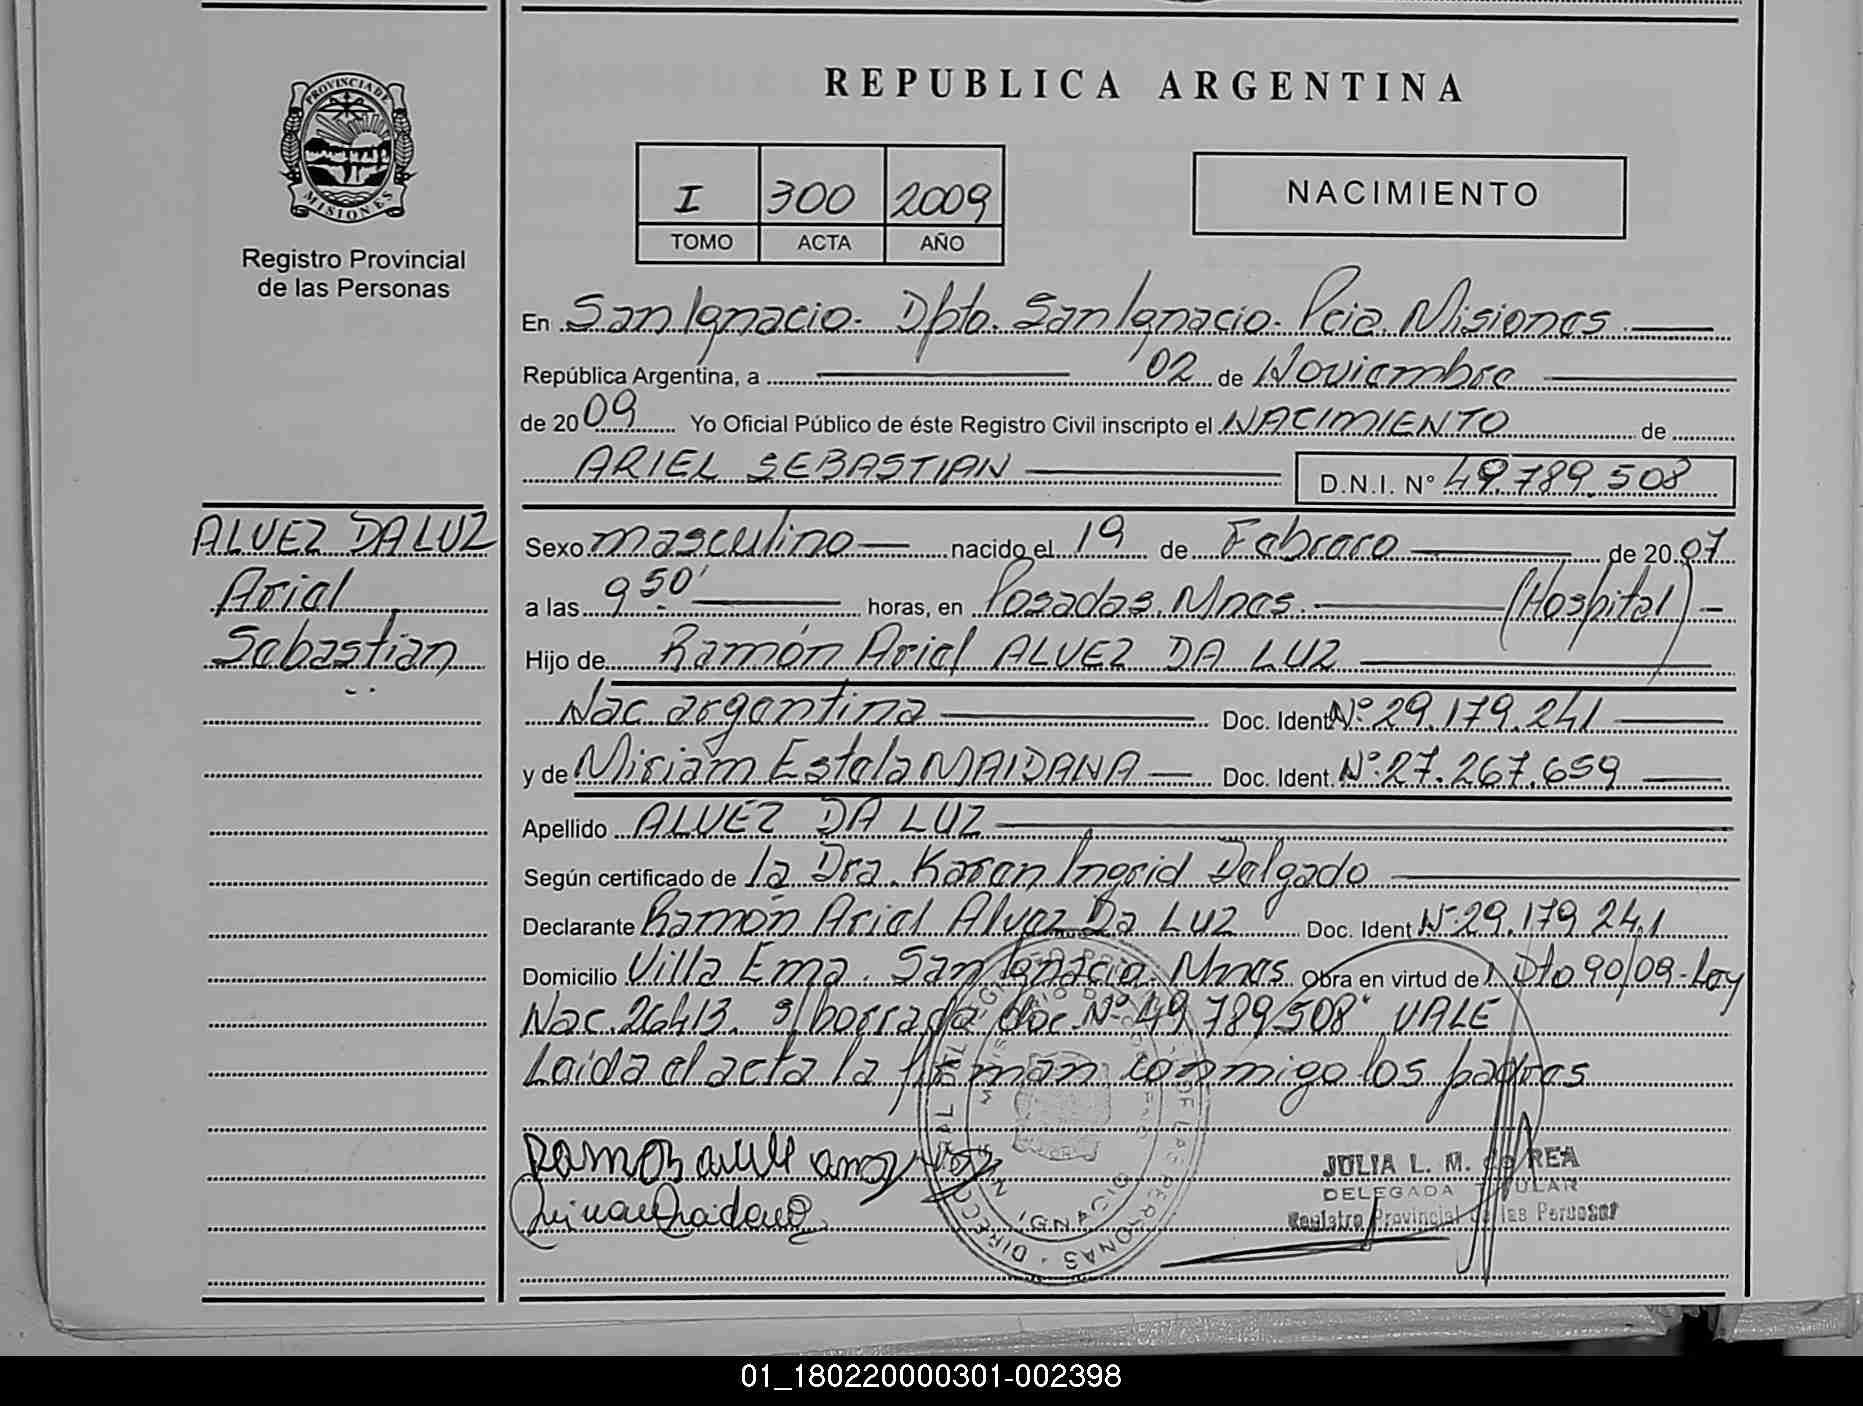 PROVINCIA DE
MISIONES
Registro Provincial
de las Personas
REPUBLICA ARGENTINA
I 300 2009
TOMO ACTA AÑO
NACIMIENTO
En San Ignacio. Dpto. San Ignacio. Pcia. Misiones
República Argentina, a 02 de Noviembre
de 2009 Yo Oficial Público de éste Registro Civil inscripto el NACIMIENTO de
ARIEL SEBASTIAN D.N.I. N° 49.789.508
ALVEZ DA LUZ
Ariel
Sebastian
Sexo masculino nacido el 19 de Febrero de 2007
a las 9 50' horas, en Posadas. Mnes. (Hospital)
Hijo de Ramón Ariel ALVEZ DA LUZ
Nac argentina Doc. Ident. Nº 29.179.241
y de Miriam Estela MAIDANA Doc. Ident. Nº 27.267.659
Apellido ALVEZ DA LUZ
Según certificado de la Dra. Karen Ingrid Delgado
Declarante Ramón Ariel Alvez Da Luz Doc. Ident Nº 29.179.241
Domicilio Villa Ema. San Ignacio. Mnes. Obra en virtud de Dto 90/09 - Ley
Nac. 26413. s/borrado doc. Nº 49.789.508" VALE
Leída el acta la firman conmigo los padres
JULIA L. M. de REA
DELEGADA TITULAR
Registro Provincial de las Personas
01_180220000301-002398